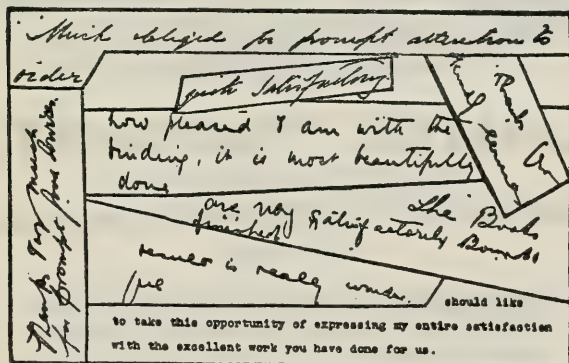 Much obliged for prompt attention to
order
quite satisfactory.
Thanks
how pleased I am with the
binding, it is most beautifully
done
The Books
are very satisfactorily Bound
finished
result is really wonder
ful
Thanks very much
for prompt
should like
to take this opportunity of expressing my entire satisfaction
with the excellent work you have done for us.